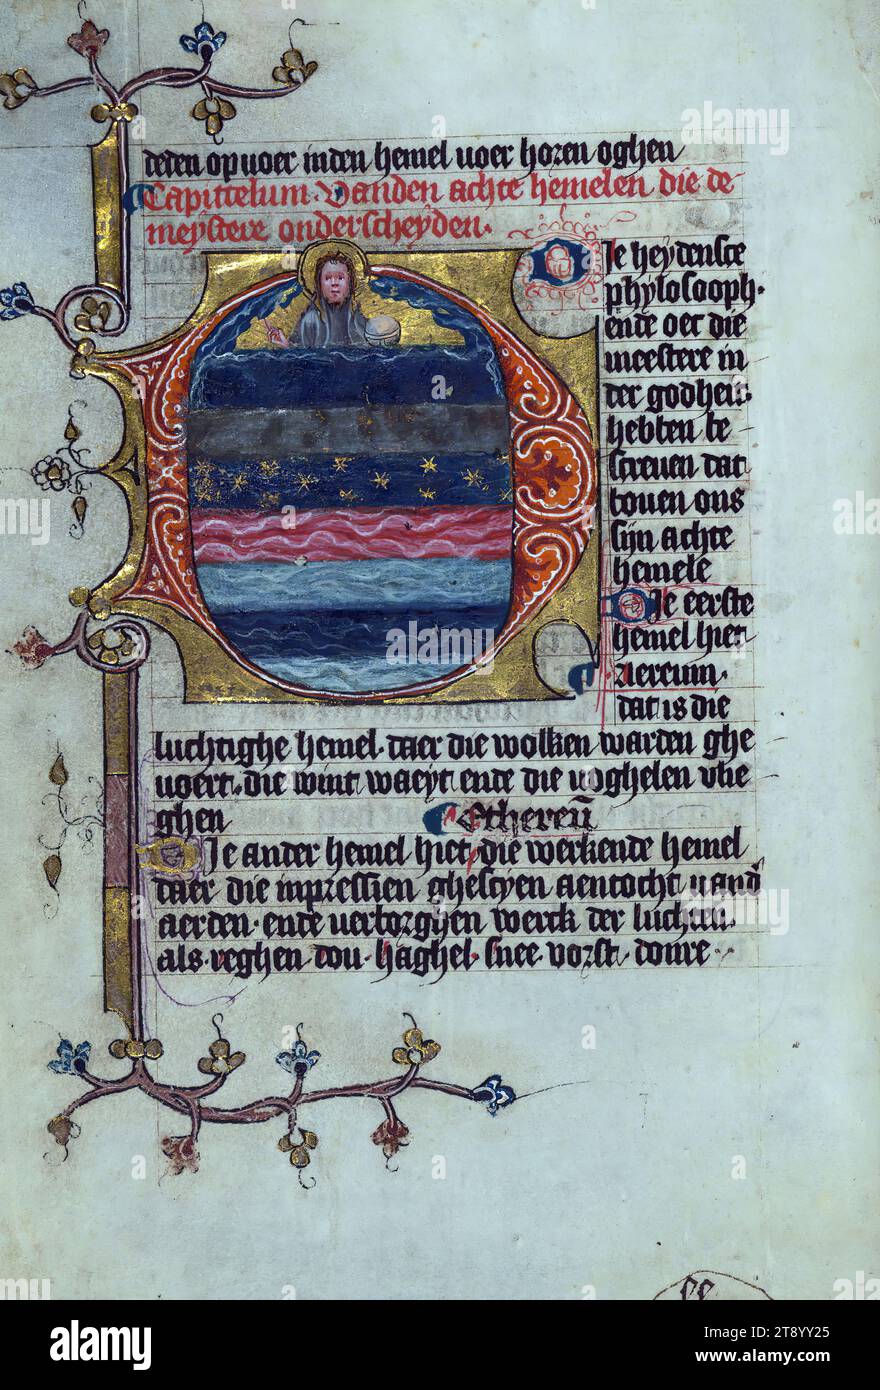 deden op voer inden hemel voer horen oghen
Capittelum. Vanden achte hemelen die de
meystere onderscheyden.
Die heydensce
phylosooph.
ende oec die
meestere in
der godheit.
hebben be
screuen dat
bouen ons
sijn achte
hemele
Die eerste
hemel hiet
aereum.
dat is die
luchtighe hemel. daer die wolken warden ghe
uoert. die wint waeyt ende die voghelen vlie
ghen Ethereu̅
Die ander hemel hiet. die werkende hemel
daer die inpressien ghescyen aentocht vand
aerden. ende verborghen werck der luchten.
als. reghen dou. haghel. snee. vorst. donre
alamy
Image ID: 2T8YY25
www.alamy.com